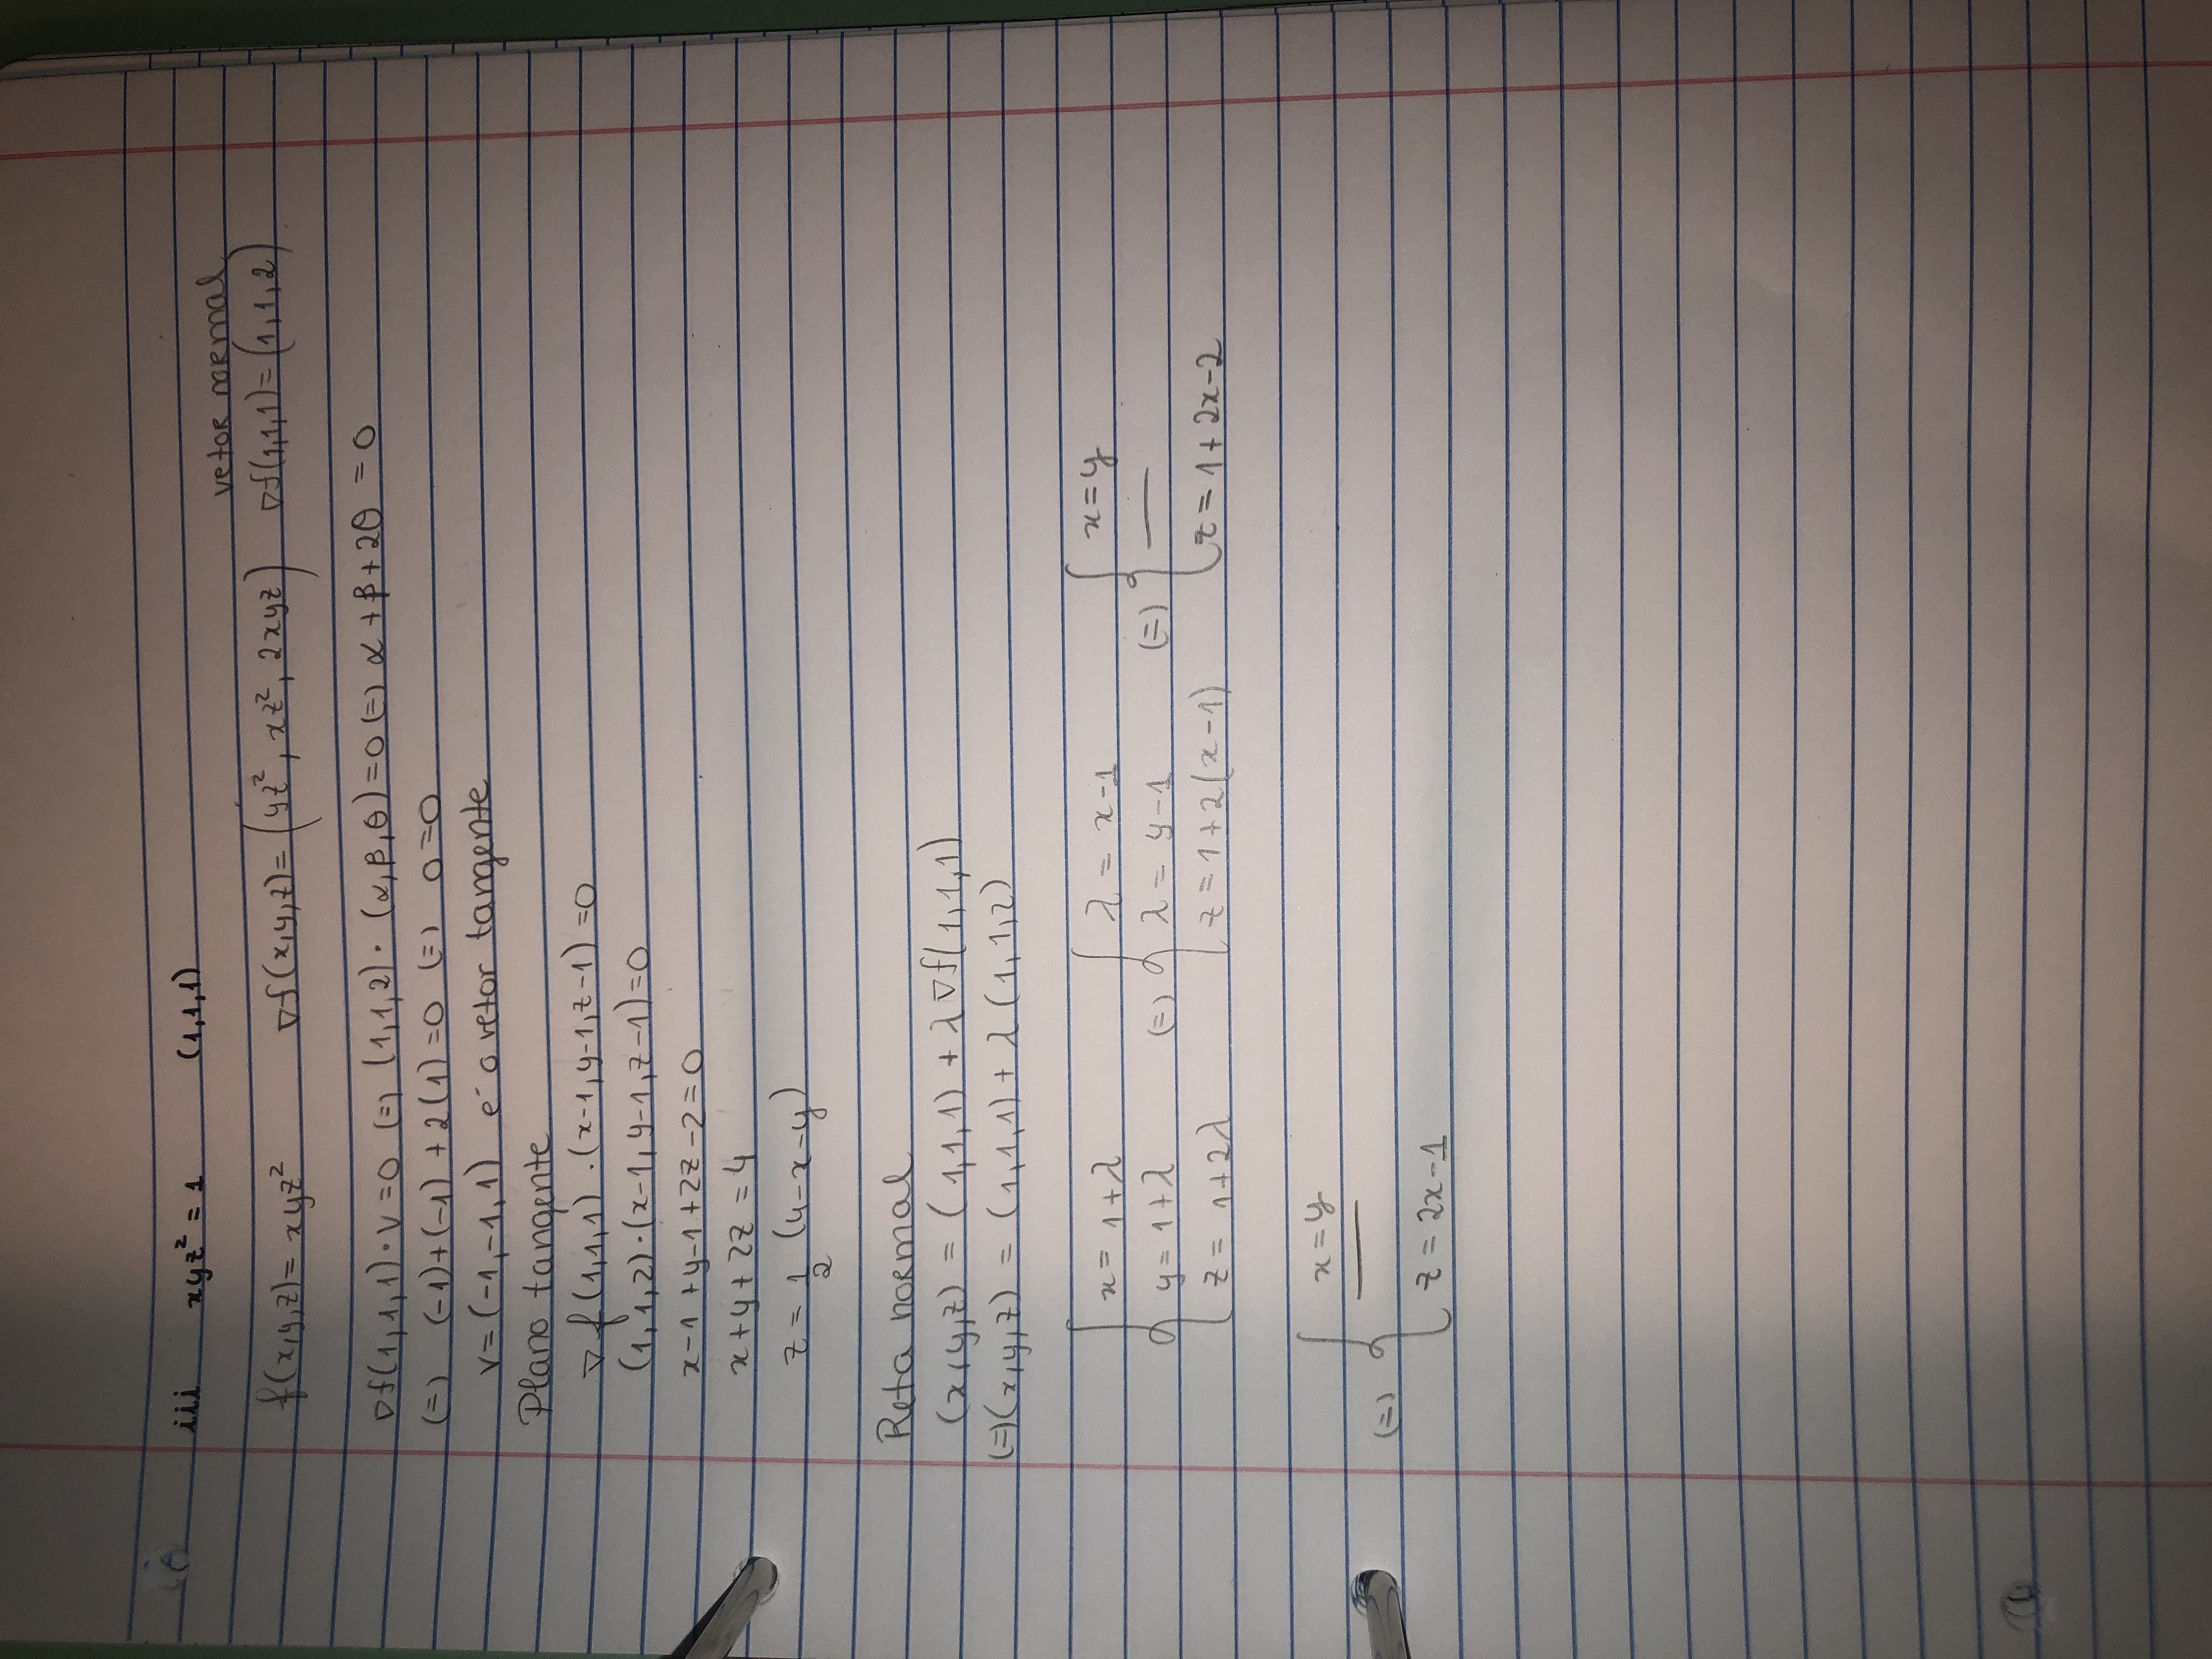 iii xyz² = 1 (1,1,1)
vetor normal
f(x,y,z)= xyz² ∇f(x,y,z)= (yz², xz², 2xyz) ∇f(1,1,1)=(1,1,2)
∇f(1,1,1)·v=0 (=) (1,1,2)·(α,β,θ)=0 (=) α+β+2θ =0
(=) (-1)+(-1)+2(1)=0 (=) 0=0
v=(-1,-1,1) é o vetor tangente
Plano tangente
∇f(1,1,1).(x-1,y-1,z-1)=0
(1,1,2)·(x-1,y-1,z-1)=0
x-1+y-1+2z-2=0
x+y+2z=4
z = 1/2 (4-x-y)
Reta normal
(x,y,z) = (1,1,1) + λ∇f(1,1,1)
(=)(x,y,z) = (1,1,1)+ λ(1,1,2)
{ x= 1+λ { λ = x-1 { x=y
y= 1+λ (=) λ = y-1 (=) —
z= 1+2λ z=1+2(x-1) z=1+2x-2
{ x=y
(=) —
z = 2x-1